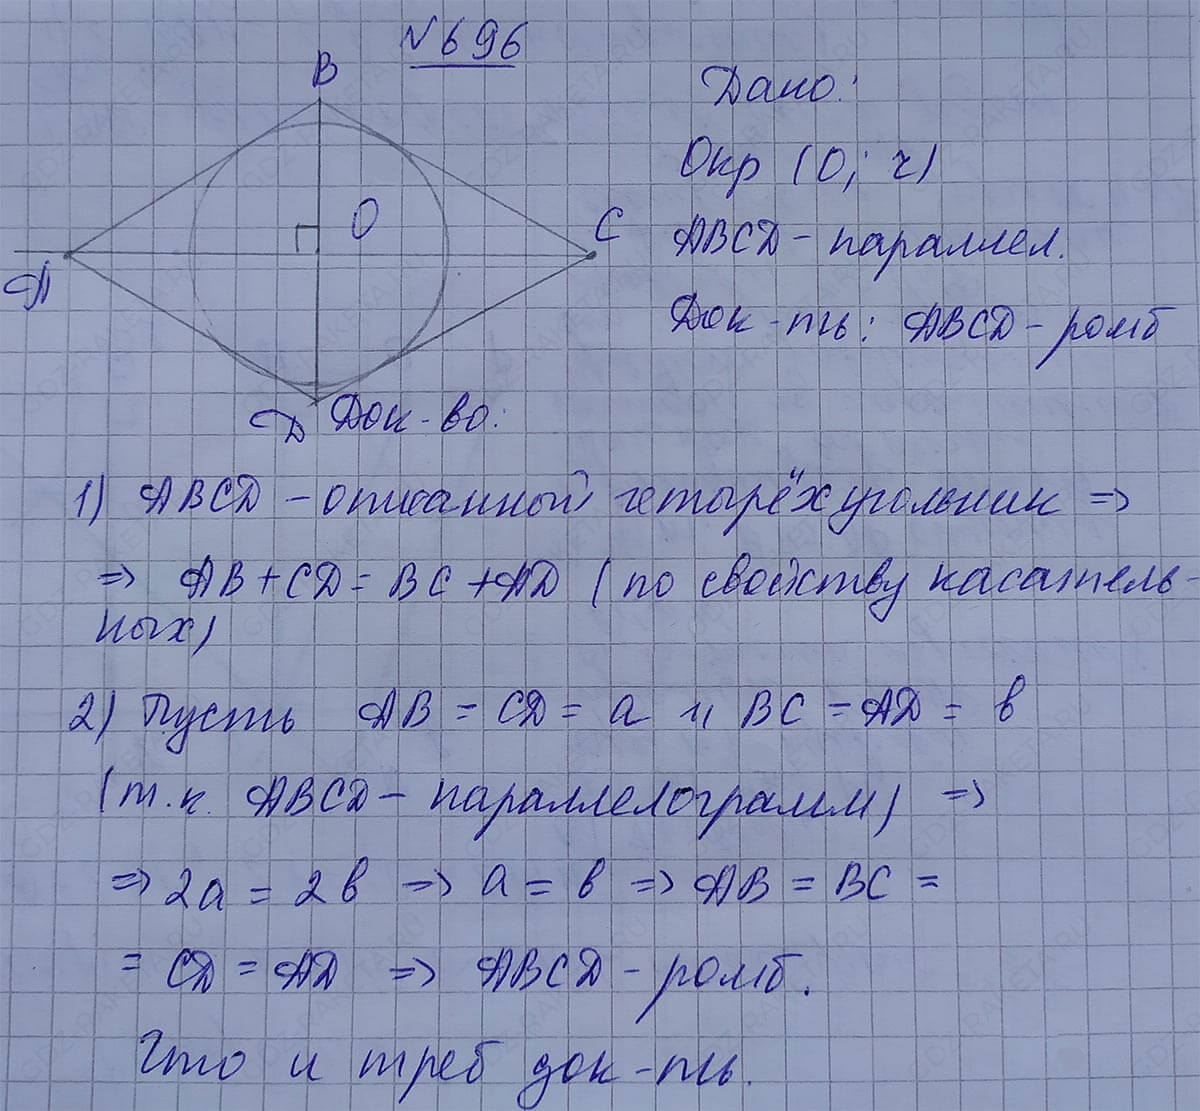 №696
B
Дано:
Окр (O; r)
O
C
ABCD - параллел.
A
Док-ть: ABCD - ромб
D
Док-во:
1) ABCD - описанный четырёхугольник =>
=> AB + CD = BC + AD (по свойству касатель-
ных)
2) Пусть AB = CD = a и BC = AD = b
(т.к. ABCD - параллелограмм) =>
=> 2a = 2b => a = b => AB = BC =
= CD = AD => ABCD - ромб.
Что и треб док-ть.